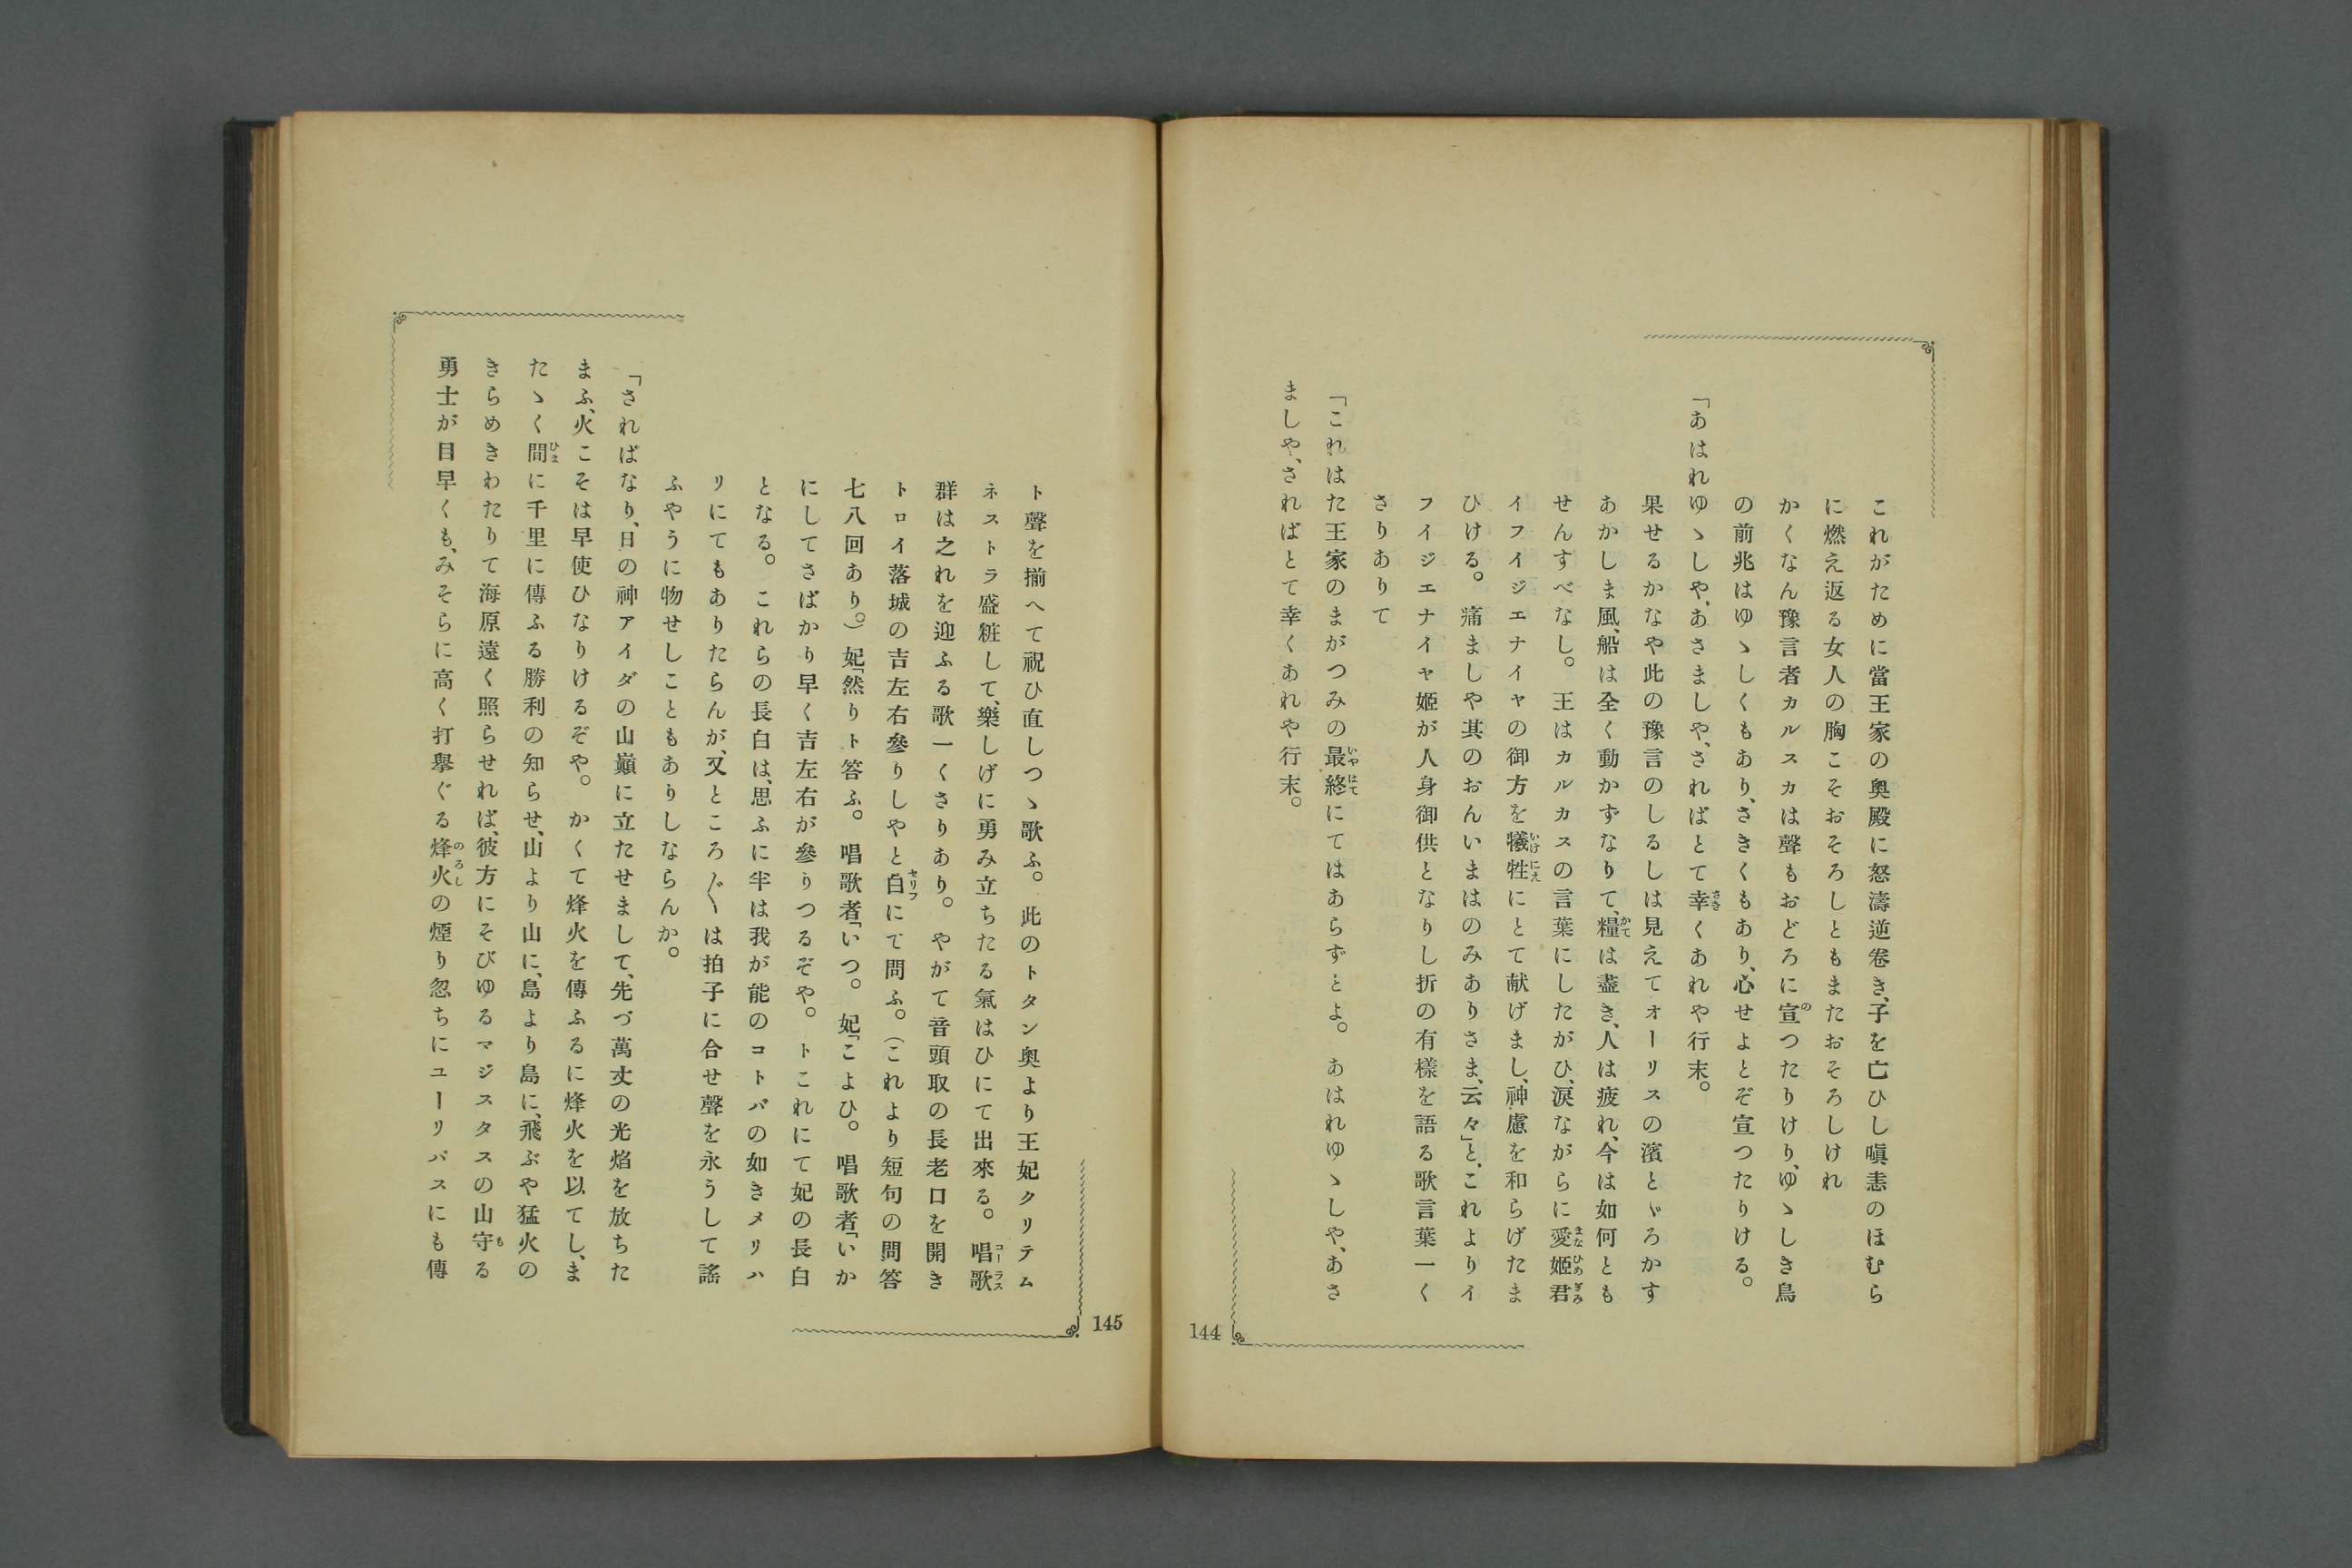 これがために當王家の奥殿に怒濤逆卷き、子を亡ひし嗔恚のほむら
に燃え返る女人の胸こそおそろしともまたおそろしけれ
かくなん豫言者カルスカは聲もおどろに宣つたりけり、ゆゝしき鳥
の前兆はゆゝしくもあり、さきくもあり、心せよとぞ宣つたりける。
「あはれゆゝしや、あさましや、さればとて幸くあれや行末。
果せるかなや此の豫言のしるしは見えてオーリスの濱とゞろかす
あかしま風、船は全く動かずなりて、糧は盡き、人は疲れ、今は如何とも
せんすべなし。王はカルカスの言葉にしたがひ、涙ながらに愛姬君
イフイジエナイヤの御方を犧牲にとて献げまし、神慮を和らげたま
ひける。痛ましや其のおんいまはのみありさま、云々」と、これよりイ
フイジエナイヤ姬が人身御供となりし折の有樣を語る歌言葉一く
さりありて
「これはた王家のまがつみの最終にてはあらずとよ。あはれゆゝしや、あさ
ましや、さればとて幸くあれや行末。
144
ト聲を揃へて祝ひ直しつゝ歌ふ。此のトタン奥より王妃クリテム
ネストラ盛粧して、樂しげに勇み立ちたる氣はひにて出來る。唱歌
群は之れを迎ふる歌一くさりあり。やがて音頭取の長老口を開き
トロイ落城の吉左右參りしやと白にて問ふ。（これより短句の問答
七八回あり。）妃「然りト答ふ。唱歌者「いつ。妃「こよひ。唱歌者「いか
にしてさばかり早く吉左右が參りつるぞや。トこれにて妃の長白
となる。これらの長白は、思ふに半は我が能のコトバの如きメリハ
リにてもありたらんが、又ところ〴〵は拍子に合せ聲を永うして謠
ふやうに物せしこともありしならんか。
「さればなり、日の神アイダの山巓に立たせまして、先づ萬丈の光焰を放ちた
まふ、火こそは早使ひなりけるぞや。かくて烽火を傳ふるに烽火を以てし、ま
たゝく間に千里に傳ふる勝利の知らせ、山より山に、島より島に、飛ぶや猛火の
きらめきわたりて海原遠く照らせれば、彼方にそびゆるマジスタスの山守る
勇士が目早くも、みそらに高く打擧ぐる烽火の煙り忽ちにユーリパスにも傳
145